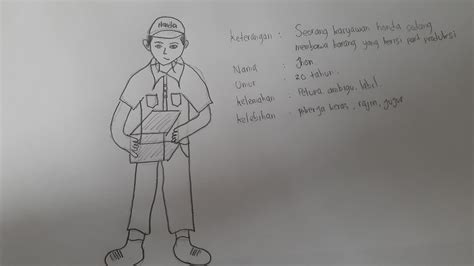 Honda
Keterangan : Seorang karyawan honda sedang
membawa barang yang berisi part produksi
Nama : Jhon
Umur : 20 tahun.
Kelemahan : Pelupa, ambigu, labil.
Kelebihan : pekerja keras, rajin, jujur